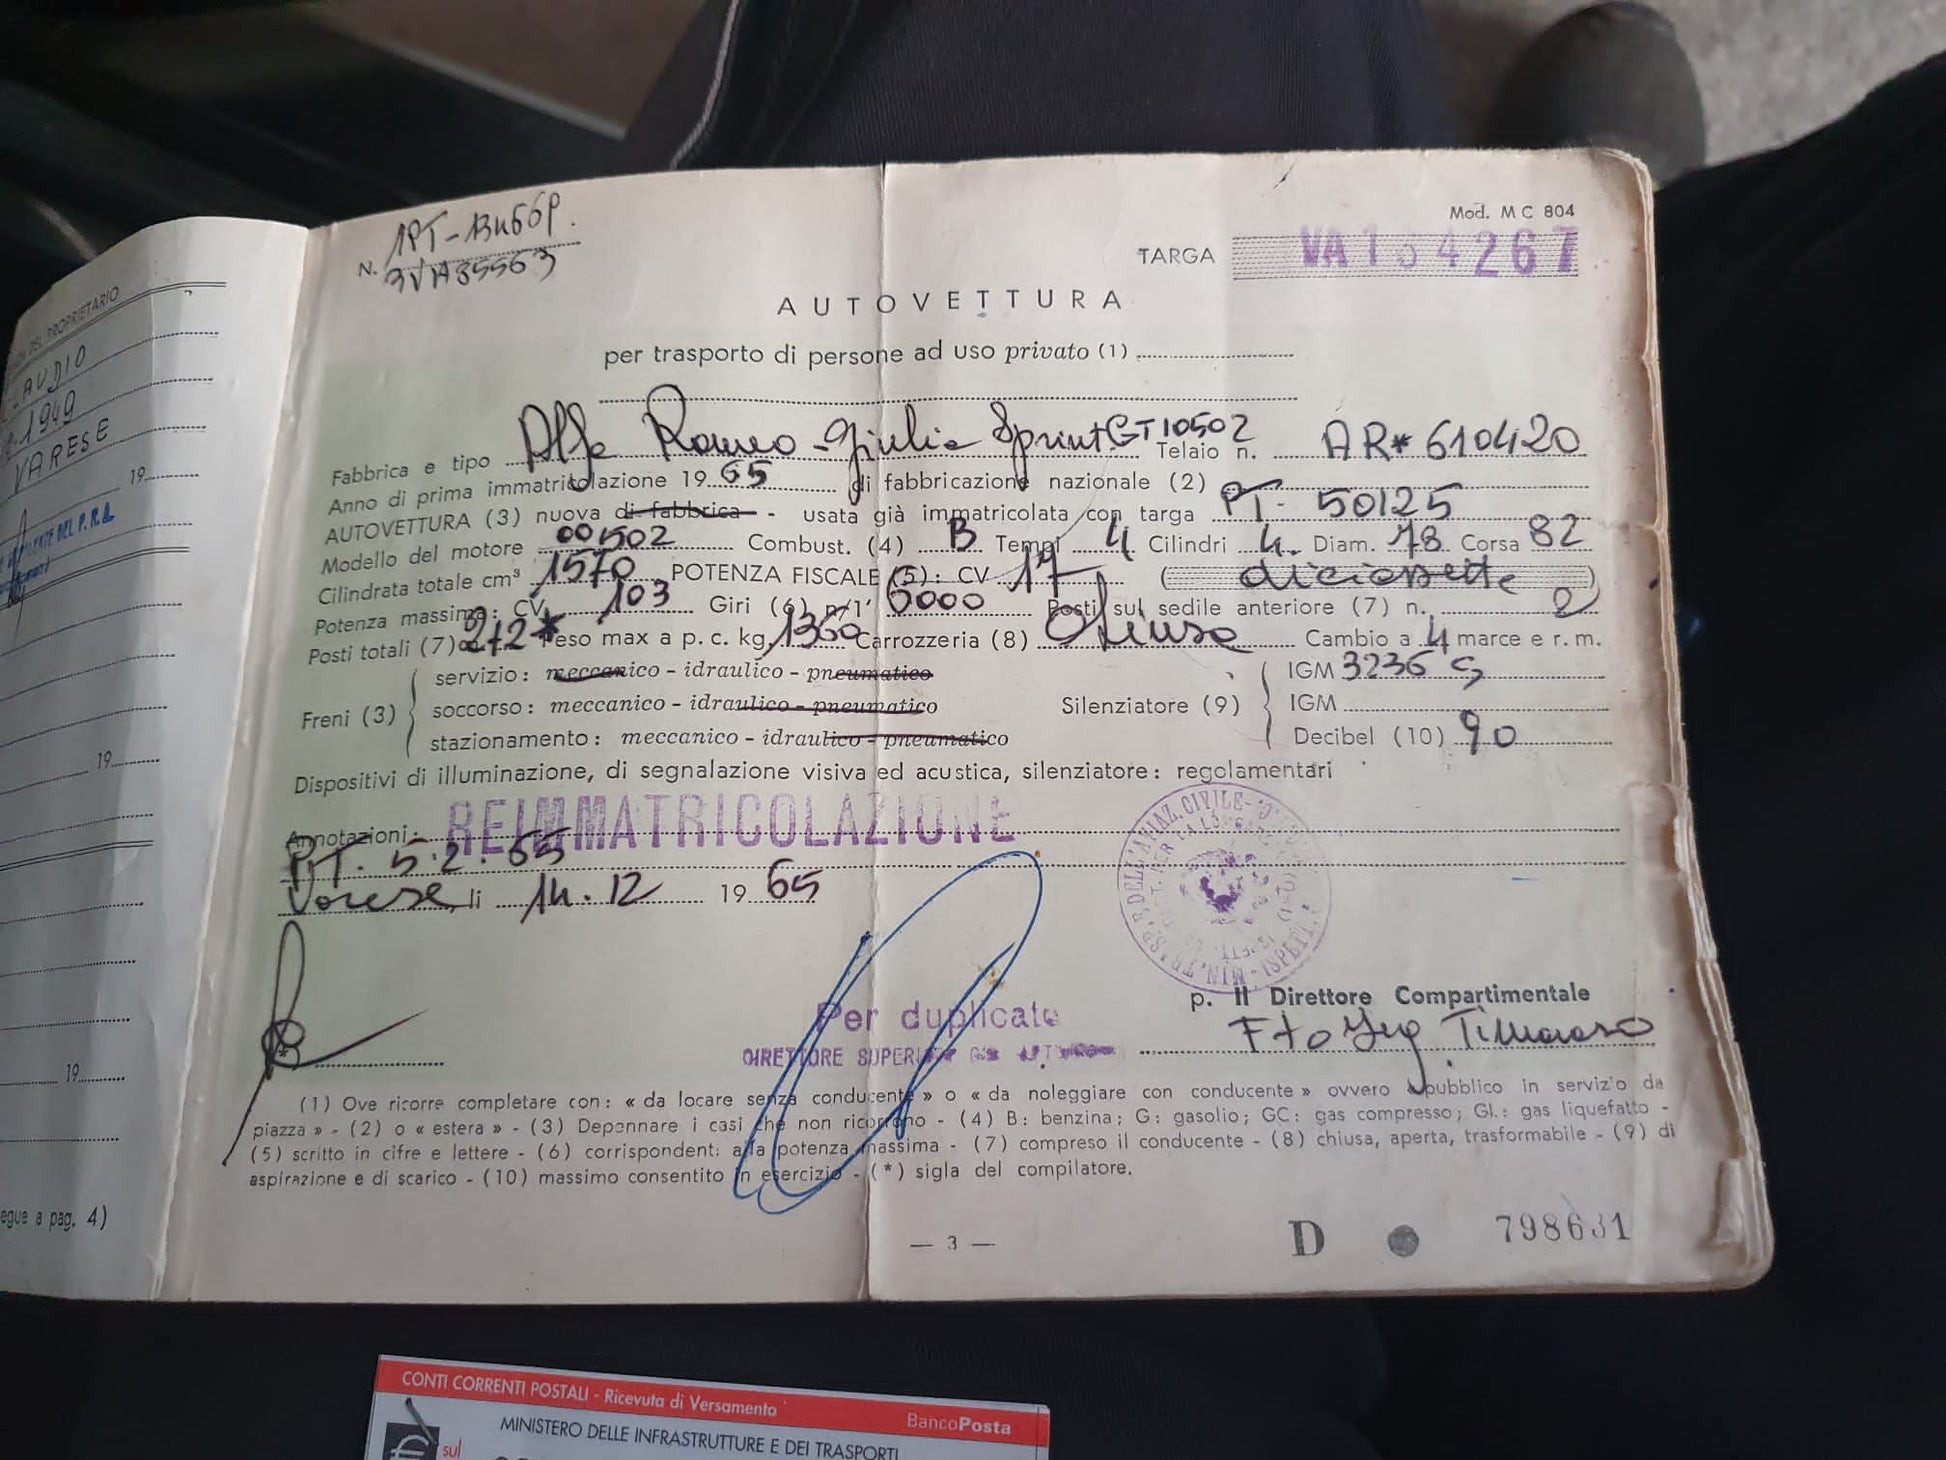 DEL PROPRIETARIO
AUDIO
1949
VARESE
19
DEL P.R.A.
19
19
egue a pag. 4)
1PT-13466P.
N. 3VA35563
Mod. M C 804
TARGA VA 164267
AUTOVETTURA
per trasporto di persone ad uso privato (1)
Fabbrica e tipo Alfa Romeo - Giulia Sprint GT 10502 Telaio n. AR* 610420
Anno di prima immatricolazione 1965 di fabbricazione nazionale (2)
AUTOVETTURA (3) nuova di fabbrica - usata già immatricolata con targa PT - 50125
Modello del motore 00502 Combust. (4) B Tempi 4 Cilindri 4. Diam. 78 Corsa 82
Cilindrata totale cm³ 1570 POTENZA FISCALE (5): CV 17 (diciassette)
Potenza massima: CV 103 Giri (6) n/1' 6000 Posti sul sedile anteriore (7) n. 2
Posti totali (7) 2+2* Peso max a p. c. kg 1360 Carrozzeria (8) Chiusa Cambio a 4 marce e r. m.
Freni (3)
servizio: meccanico - idraulico - pneumatico
soccorso: meccanico - idraulico - pneumatico
stazionamento: meccanico - idraulico - pneumatico
Silenziatore (9)
IGM 3236 S
IGM
Decibel (10) 90
Dispositivi di illuminazione, di segnalazione visiva ed acustica, silenziatore: regolamentari
Annotazioni: REIMMATRICOLAZIONE
PT. 5.2.65
Varese, li 14.12 1965
Per duplicato
DIRETTORE
p. Il Direttore Compartimentale
Fto Ing
(1) Ove ricorre completare con: « da locare senza conducente » o « da noleggiare con conducente » ovvero pubblico in servizio da
piazza » - (2) o « estera » - (3) Depennare i casi che non ricorrono - (4) B: benzina; G: gasolio; GC: gas compresso; GL: gas liquefatto -
(5) scritto in cifre e lettere - (6) corrispondent: alla potenza massima - (7) compreso il conducente - (8) chiusa, aperta, trasformabile - (9) di
aspirazione e di scarico - (10) massimo consentito in esercizio - (*) sigla del compilatore.
— 3 —
D 798631
CONTI CORRENTI POSTALI - Ricevuta di Versamento BancoPosta
MINISTERO DELLE INFRASTRUTTURE E DEI TRASPORTI
sul